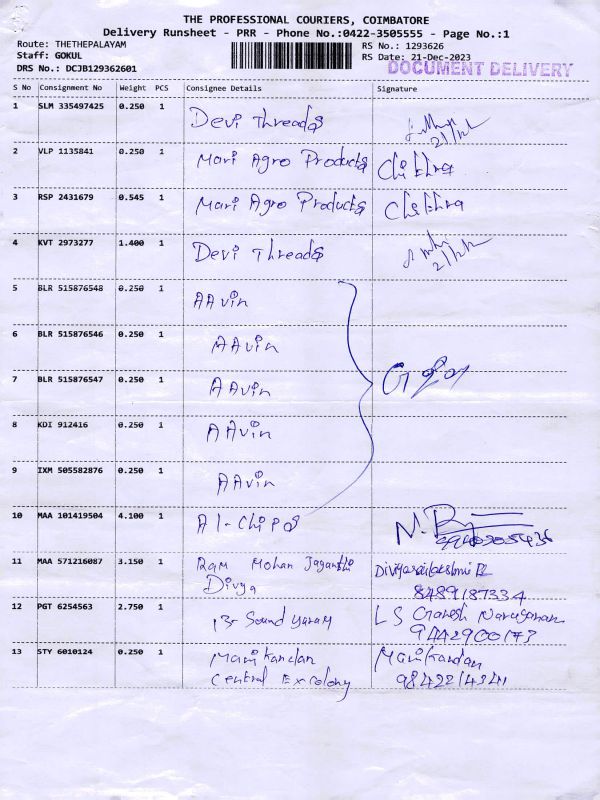 THE PROFESSIONAL COURIERS, COIMBATORE
Delivery Runsheet - PRR - Phone No.:0422-3505555 - Page No.:1
Route: THETHEPALAYAM
Staff: GOKUL
DRS No.: DCJB129362601
RS No.: 1293626
RS Date: 21-Dec-2023
DOCUMENT DELIVERY
S No Consignment No Weight PCS Consignee Details Signature
1 SLM 335497425 0.250 1 Devi Threads
21/12
2 VLP 1135841 0.250 1 Mari Agro Products Chithra
3 RSP 2431679 0.545 1 Mari Agro Products Chithra
4 KVT 2973277 1.400 1 Devi Threads
21/12
5 BLR 515876548 0.250 1 AAvin
6 BLR 515876546 0.250 1 AAvin
7 BLR 515876547 0.250 1 AAvin
8 KDI 912416 0.250 1 AAvin
9 IXM 505582876 0.250 1 AAvin
10 MAA 101419504 4.100 1 A1-Chips
11 MAA 571216087 3.150 1 Ram Mohan Jaganthi
Divya
8489187334
12 PGT 6254563 2.750 1 Sound LS Ganesh Narayanan
9442900173
13 STY 6010124 0.250 1 Manikandan Manikandan
Central Excolony 9842214341